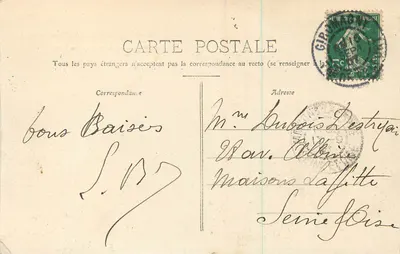 CARTE POSTALE
Tous les pays étrangers n'acceptent pas la correspondance au recto (se renseigner
Correspondance
Adresse
bons Baisers
S. B
Mme Dubois Destrez
22 av. Albine
Maisons Laffitte
Seine & Oise